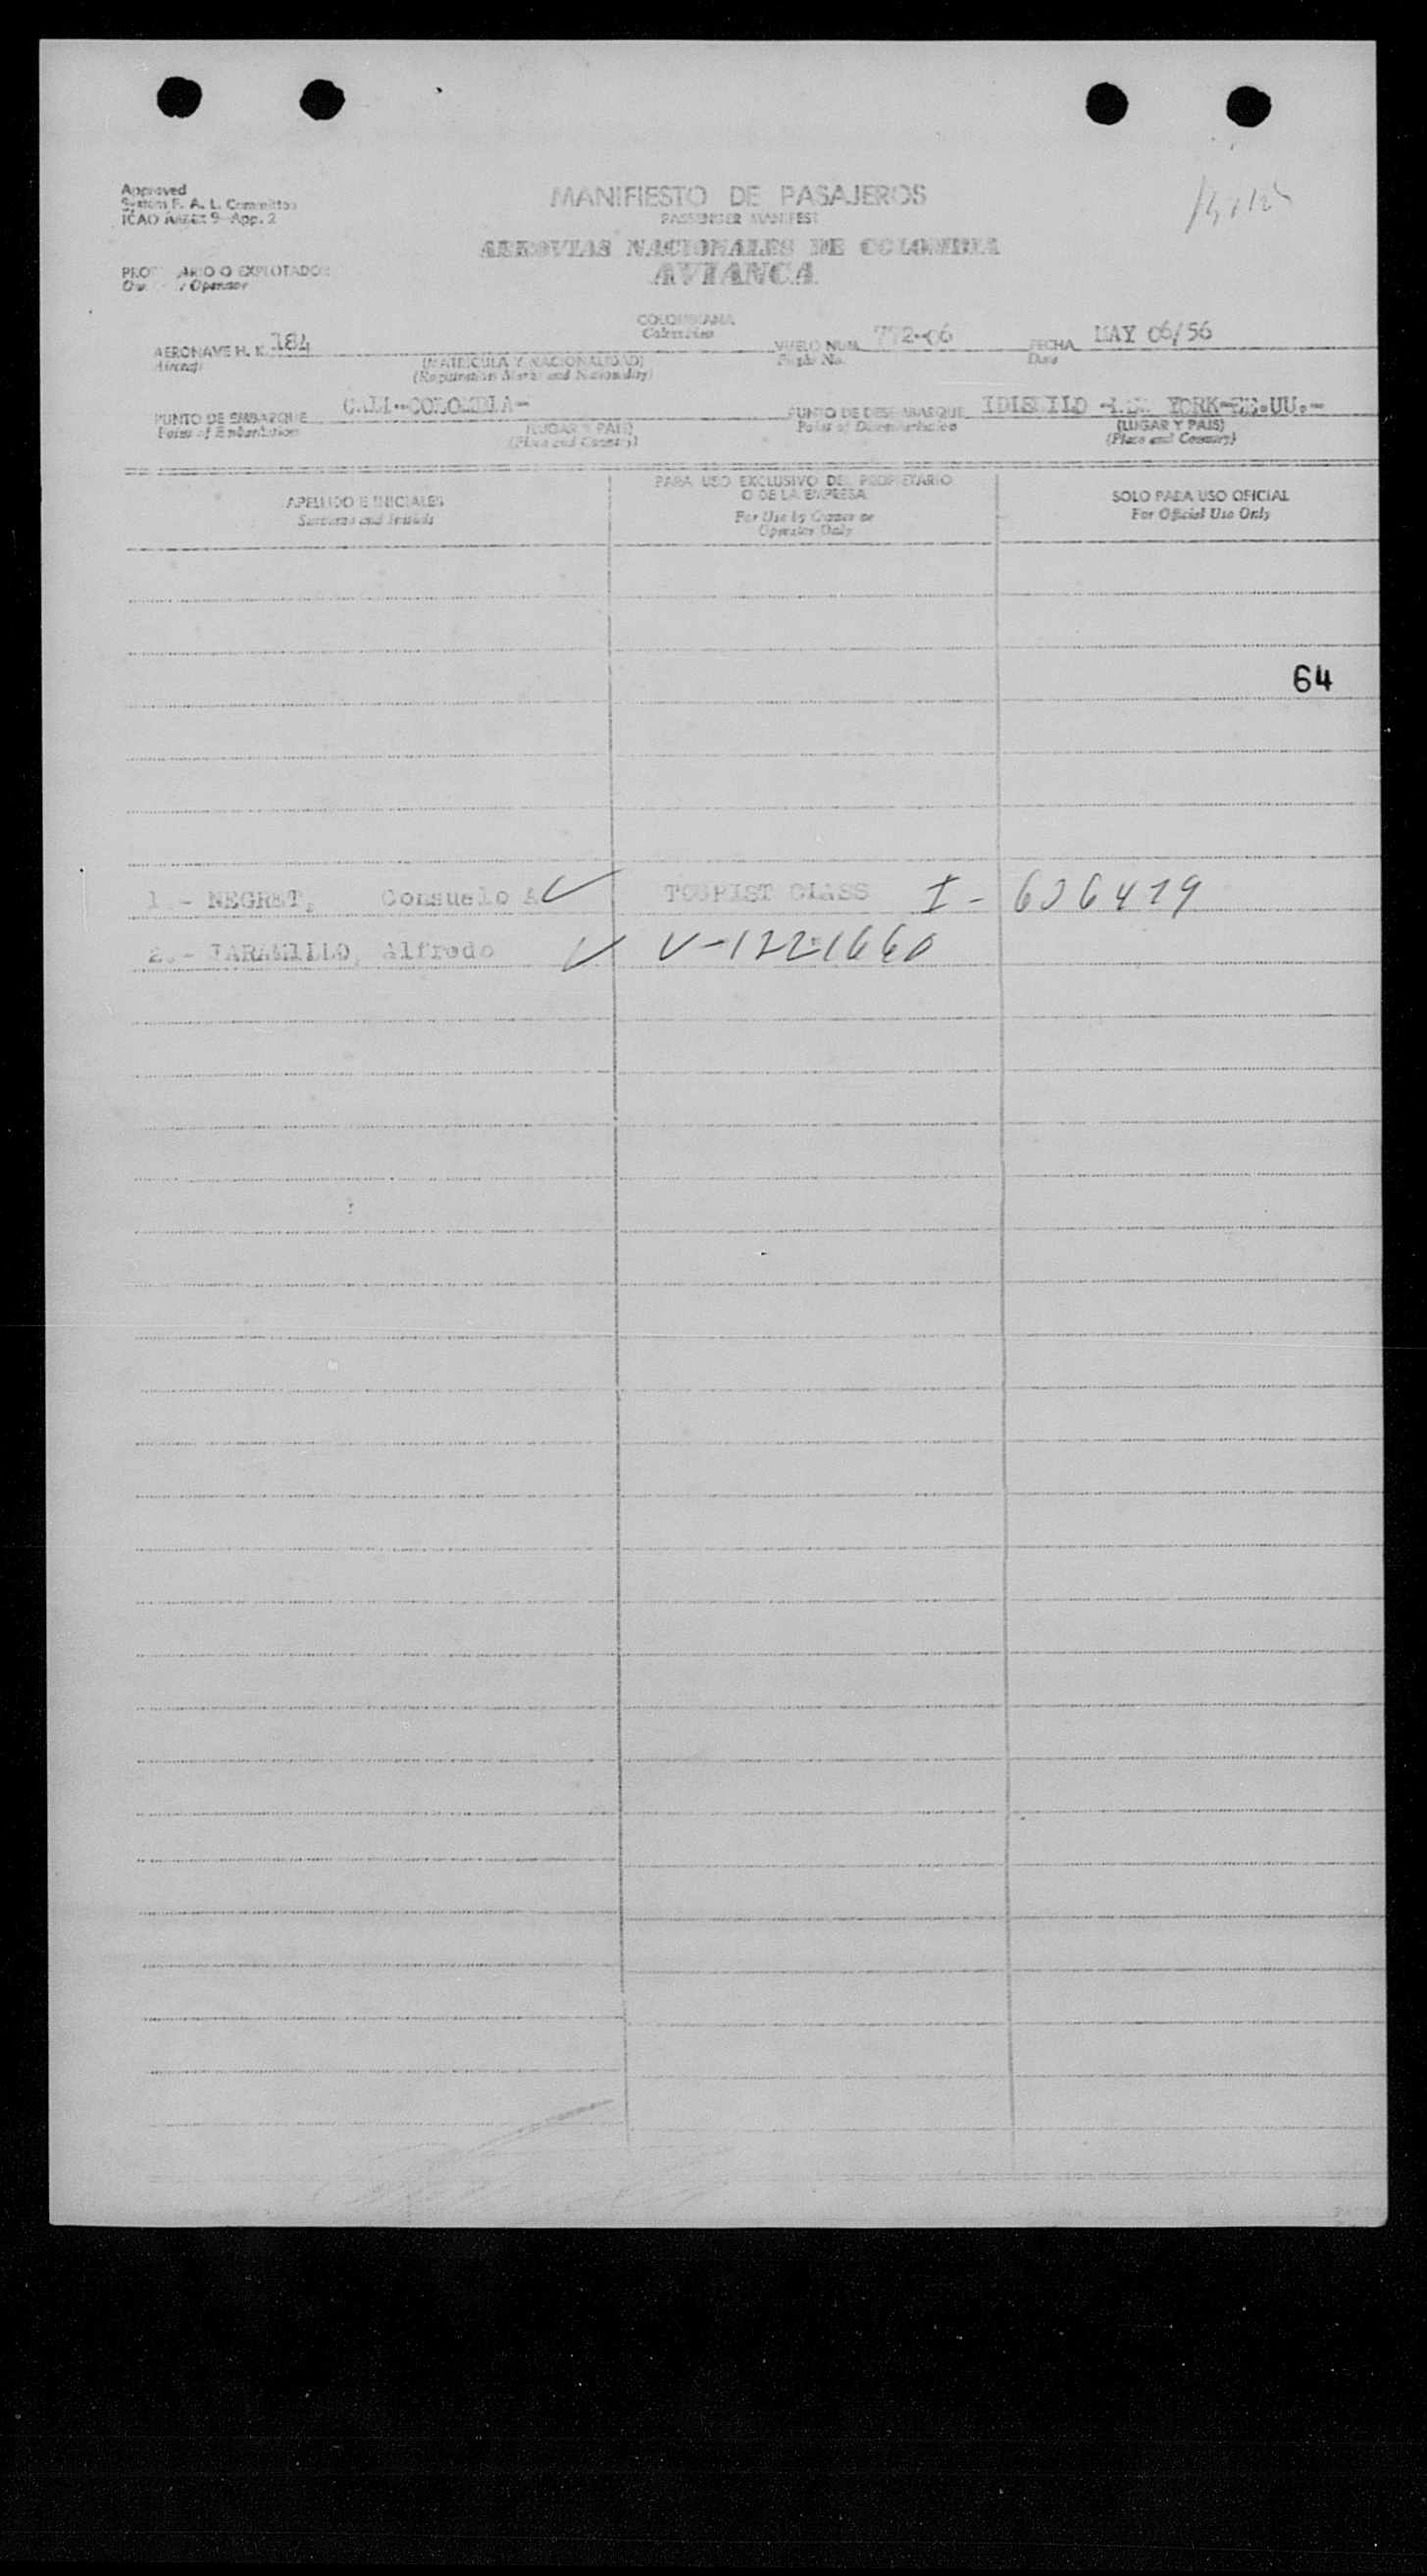 Approved
System F. A. L. Committee
ICAO Annex 9-App. 2
MANIFIESTO DE PASAJEROS
PASSENGER MANIFEST
AEROVIAS NACIONALES DE COLOMBIA
AVIANCA
PROP ARIO O EXPLOTADOR
Ow / Operator
COLOMBIANA
Colombian
AERONAVE H. K. 184 VUELO NUM. 772-06 FECHA MAY 06/56
Aircraft (MATRICULA Y NACIONALIDAD) Flight No. Date
(Registration Marks and Nationality)
PUNTO DE EMBARQUE CALI-COLOMBIA- PUNTO DE DESEMBARQUE IDLEWILD -NEW YORK-EE.UU.-
Point of Embarkation (LUGAR Y PAIS) Point of Disembarkation (LUGAR Y PAIS)
(Place and Country) (Place and Country)
APELLIDO E INICIALES
Surname and Initials
PARA USO EXCLUSIVO DEL PROPIETARIO
O DE LA EMPRESA
For Use by Owner or
Operator Only
SOLO PARA USO OFICIAL
For Official Use Only
64
1.- NEGRET, Consuelo A ✓ TOURIST CLASS I- 606479
2.- JARAMILLO, Alfredo ✓ V-1221660